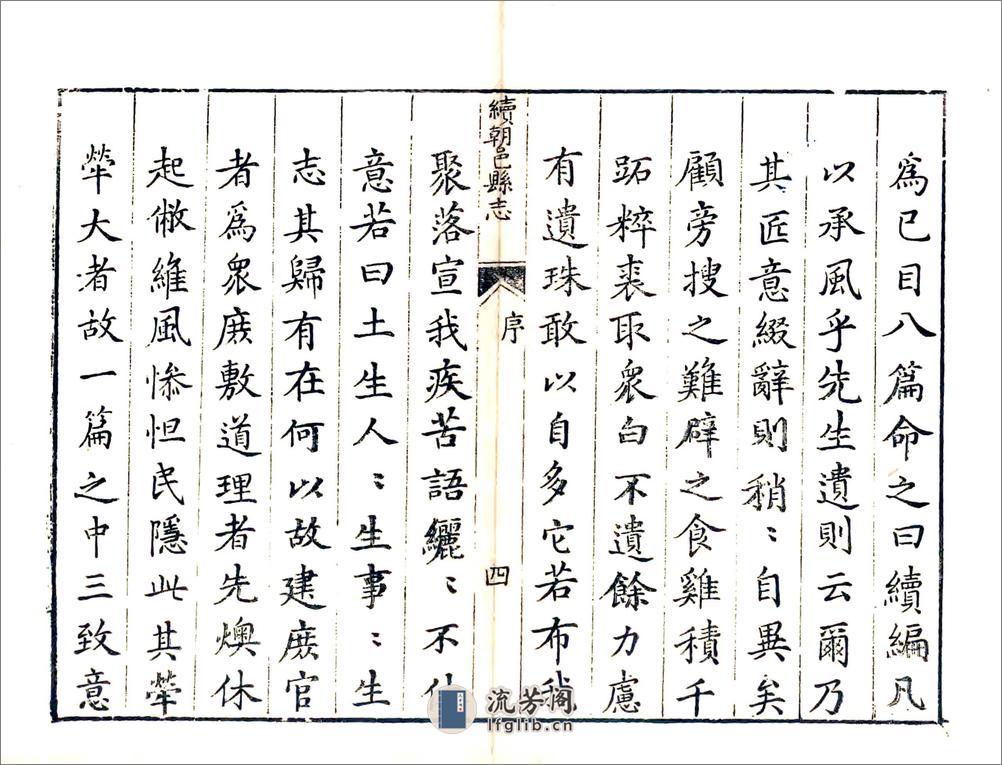 爲已目八篇命之曰續編凡
以承風乎先生遺則云爾乃
其匠意綴辭則稍〻自異矣
顧旁搜之難辟之食雞積千
跖粹裘取衆白不遺餘力慮
有遺珠敢以自多它若布我
續朝邑縣志
序
四
聚落宣我疾苦語纚〻不休
意若曰土生人〻生事〻生
志其歸有在何以故建庻官
者爲衆庻敷道理者先燠休
起敝維風慘怛民隱此其犖
犖大者故一篇之中三致意
流芳阁
lfglib.cn